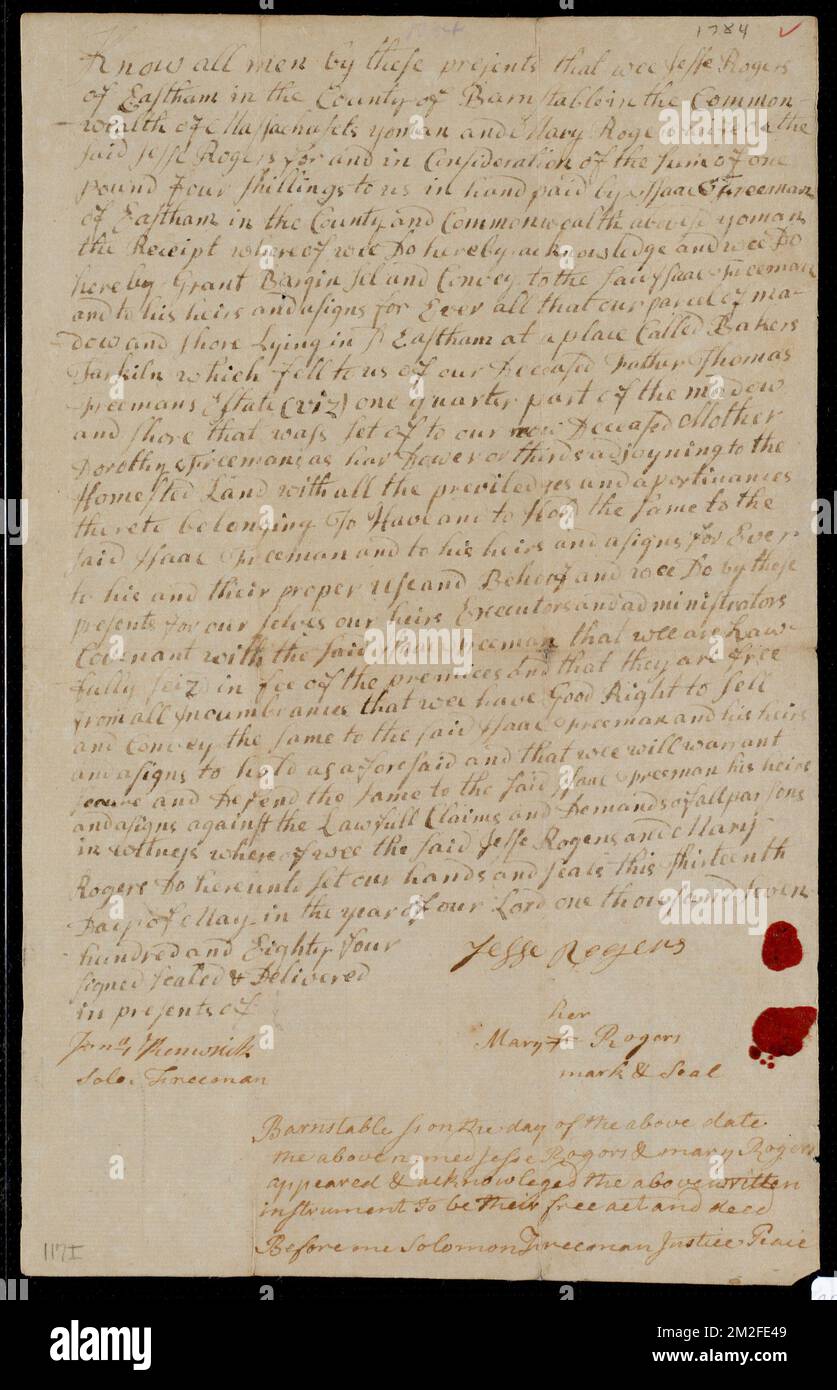 1784
Know all men by these presents that wee Jesse Rogers
of Eastham in the County of Barnstable in the Common-
wealth of Massachusets yoman and Mary Roge the
said Jesse Rogers for and in Consideration of the sum of one
pound four shillings to us in hand paid by Isaac Freeman
of Eastham in the County and Commonwealth abovesd yoman
the Receipt whereof wee Do hereby acknowledge and wee Do
hereby Grant Bargin sel and Convey to the said Isaac Freeman
and to his heirs and asigns for Ever all that our parcel of ma-
dow and shore Lying in sd Eastham at a place Called Bakers
Tarkiln which fell to us of our Deceased Father Thomas
Freemans Estate (viz) one quarter part of the madow
and shore that wass set of to our now Deceased Mother
Dorothy Freemans as har Dower or thirds adjoyning to the
Homested Land with all the previledges and aportinances
thereto belonging To Have and to Hold the same to the
said Isaac Freeman and to his heirs and asigns for Ever
to his and their proper use and Behoof and wee Do by these
presents for our selves our heirs Executors and administrators
Covenant with the said Isaac Freeman that wee are Law-
fully seiz'd in fee of the premises and that they are free
from all Incumbrances that wee have Good Right to sell
and Convey the same to the said Isaac Freeman and his heirs
and asigns to hold as aforesaid and that wee will warrant
secure and Defend the same to the said Isaac Freeman his heirs
and asigns against the Lawfull Claims and Demands of all parsons
in wittness whereof wee the said Jesse Rogers and Mary
Rogers Do hereunto set our hands and seals this thirteenth
Day of May in the year of our Lord one thousand seven
hundred and Eighty four
signed sealed & Delivered
in presents of
Jesse Rogers
her
Mary Rogers
mark & Seal
Jona Kenwrick
Solo. Freeman
Barnstable ss on the day of the above date
the above named Jesse Rogers & mary Rogers
appeared & acknowleged the above written
instrument to be their free act and deed
Before me Solomon Freeman Justice Peace
117I
alamy
Image ID: 2M2FE49
www.alamy.com